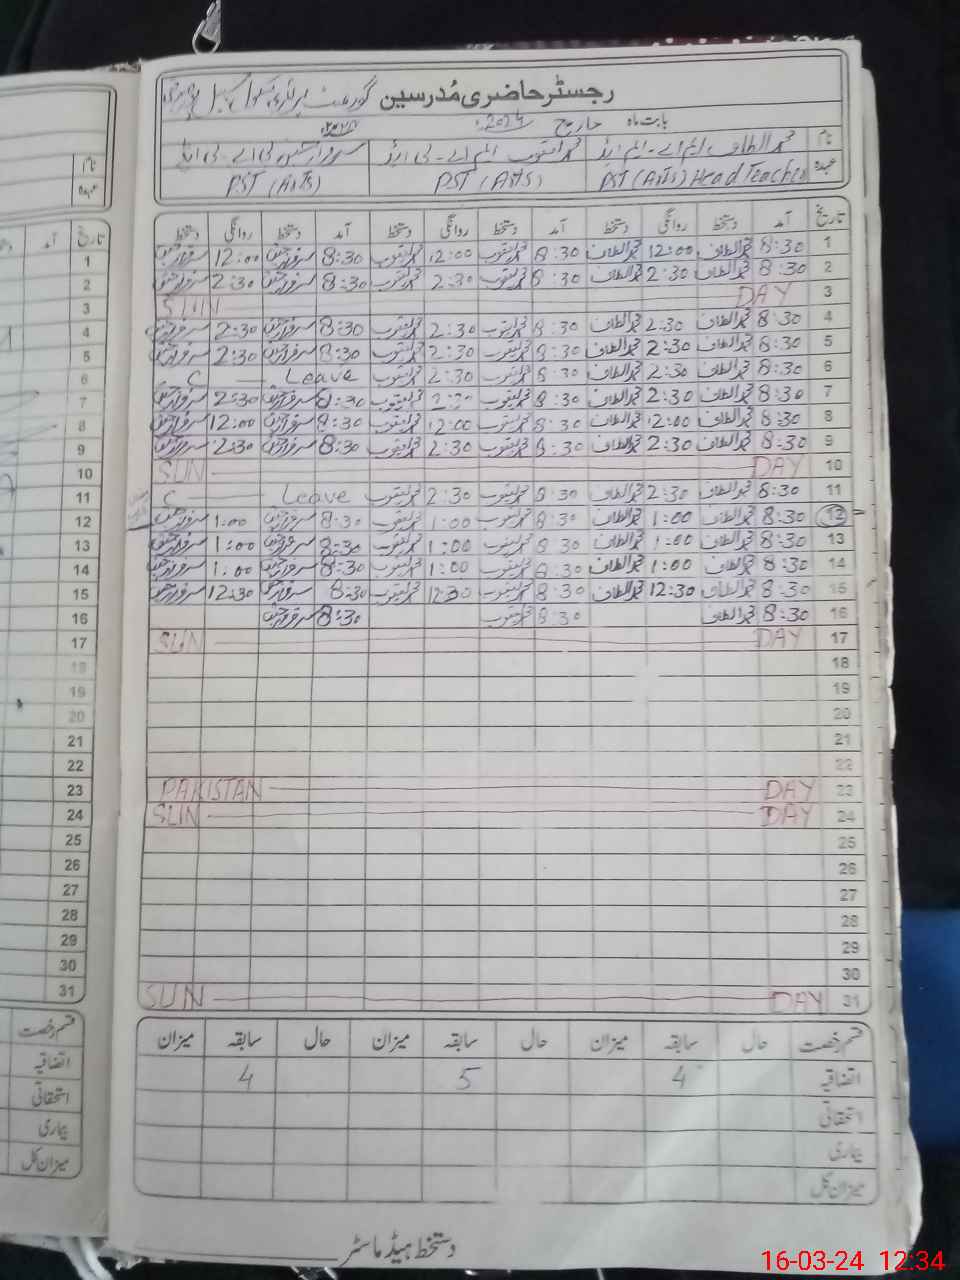 رجسٹر حاضری مُدرسین گورنمنٹ پرائمری سکول
بابت ماہ مارچ 2024ء
نام محمد الطاف ایم اے - ایم ایڈ محمد یعقوب ایم اے - بی ایڈ سرفراز حسین بی اے - بی ایڈ
عہدہ PST (Arts) Head Teacher PST (Arts) PST (Arts)
تاریخ آمد دستخط روانگی دستخط آمد دستخط روانگی دستخط آمد دستخط روانگی دستخط
1 8:30 محمد الطاف 12:00 محمد الطاف 8:30 محمد یعقوب 12:00 محمد یعقوب 8:30 سرفراز حسین 12:00 سرفراز حسین
2 8:30 محمد الطاف 2:30 محمد الطاف 8:30 محمد یعقوب 2:30 محمد یعقوب 8:30 سرفراز حسین 2:30 سرفراز حسین
3 SUN DAY
4 8:30 محمد الطاف 2:30 محمد الطاف 8:30 محمد یعقوب 2:30 محمد یعقوب 8:30 سرفراز حسین 2:30 سرفراز حسین
5 8:30 محمد الطاف 2:30 محمد الطاف 8:30 محمد یعقوب 2:30 محمد یعقوب 8:30 سرفراز حسین 2:30 سرفراز حسین
6 8:30 محمد الطاف 2:30 محمد الطاف 8:30 محمد یعقوب 2:30 محمد یعقوب C Leave
7 8:30 محمد الطاف 2:30 محمد الطاف 8:30 محمد یعقوب 2:30 محمد یعقوب 8:30 سرفراز حسین 2:30 سرفراز حسین
8 8:30 محمد الطاف 12:00 محمد الطاف 8:30 محمد یعقوب 12:00 محمد یعقوب 8:30 سرفراز حسین 12:00 سرفراز حسین
9 8:30 محمد الطاف 2:30 محمد الطاف 8:30 محمد یعقوب 2:30 محمد یعقوب 8:30 سرفراز حسین 2:30 سرفراز حسین
10 SUN DAY
11 8:30 محمد الطاف 2:30 محمد الطاف 8:30 محمد یعقوب 2:30 محمد یعقوب C Leave
12 8:30 محمد الطاف 1:00 محمد الطاف 8:30 محمد یعقوب 1:00 محمد یعقوب 8:30 سرفراز حسین 1:00 سرفراز حسین
13 8:30 محمد الطاف 1:00 محمد الطاف 8:30 محمد یعقوب 1:00 محمد یعقوب 8:30 سرفراز حسین 1:00 سرفراز حسین
14 8:30 محمد الطاف 1:00 محمد الطاف 8:30 محمد یعقوب 1:00 محمد یعقوب 8:30 سرفراز حسین 1:00 سرفراز حسین
15 8:30 محمد الطاف 12:30 محمد الطاف 8:30 محمد یعقوب 12:30 محمد یعقوب 8:30 سرفراز حسین 12:30 سرفراز حسین
16 8:30 محمد الطاف 8:30 محمد یعقوب 8:30 سرفراز حسین
17 SUN DAY
18
19
20
21
22
23 PAKISTAN DAY
24 SUN DAY
25
26
27
28
29
30
31 SUN DAY
قسم رخصت حال سابقہ میزان حال سابقہ میزان حال سابقہ میزان
اتفاقیہ 4 5 4
استحقاقی
بیماری
میزان کل
دستخط ہیڈ ماسٹر
نام
عہدہ
تاریخ آمد
1
2
3
4
5
6
7
8
9
10
11
12
13
14
15
16
17
18
19
20
21
22
23
24
25
26
27
28
29
30
31
قسم رخصت
اتفاقیہ
استحقاقی
بیماری
میزان کل
16-03-24 12:34